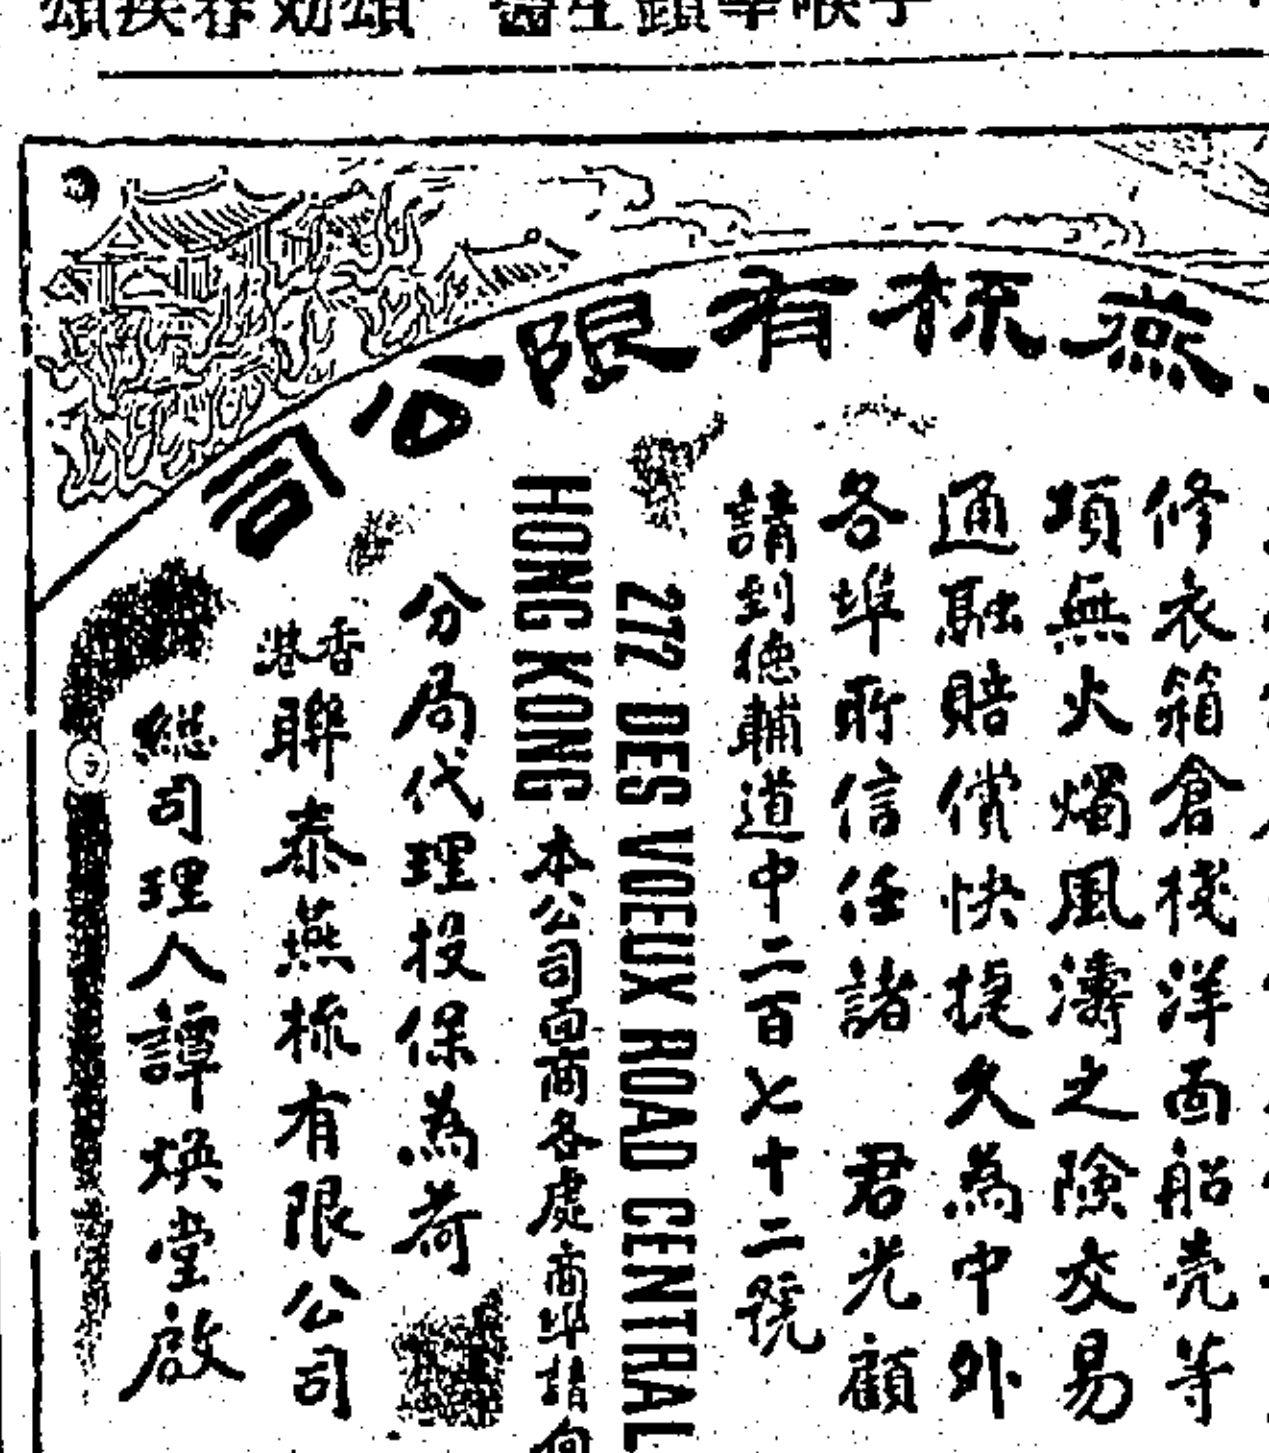 燕梳有限公司
修衣箱倉棧洋面船壳等
項無火燭風濤之險交易
通融賠償快捷久為中外
各埠所信任諸 君光顧
請到德輔道中二百七十二號
272 DES VOEUX ROAD CENTRAL
HONG KONG 本公司面商各處商埠請向
分局代理投保為荷
香港聯泰燕梳有限公司
總司理人譚煥堂啟